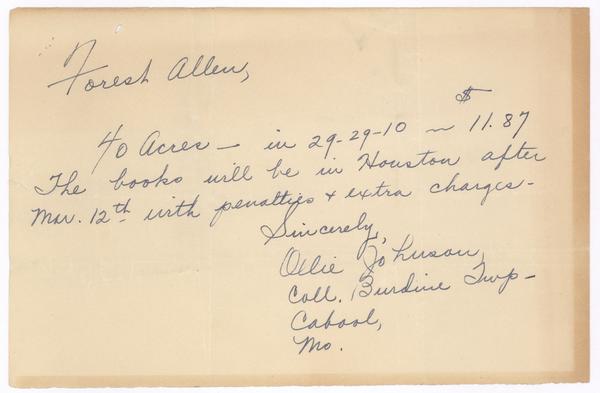 Forest Allen,
40 Acres — in 29-29-10 ~ $11.87
The books will be in Houston after
Mar. 12th with penalties + extra charges-
Sincerely,
Ollie Johnson,
Coll. Burdine Twp-
Cabool,
Mo.